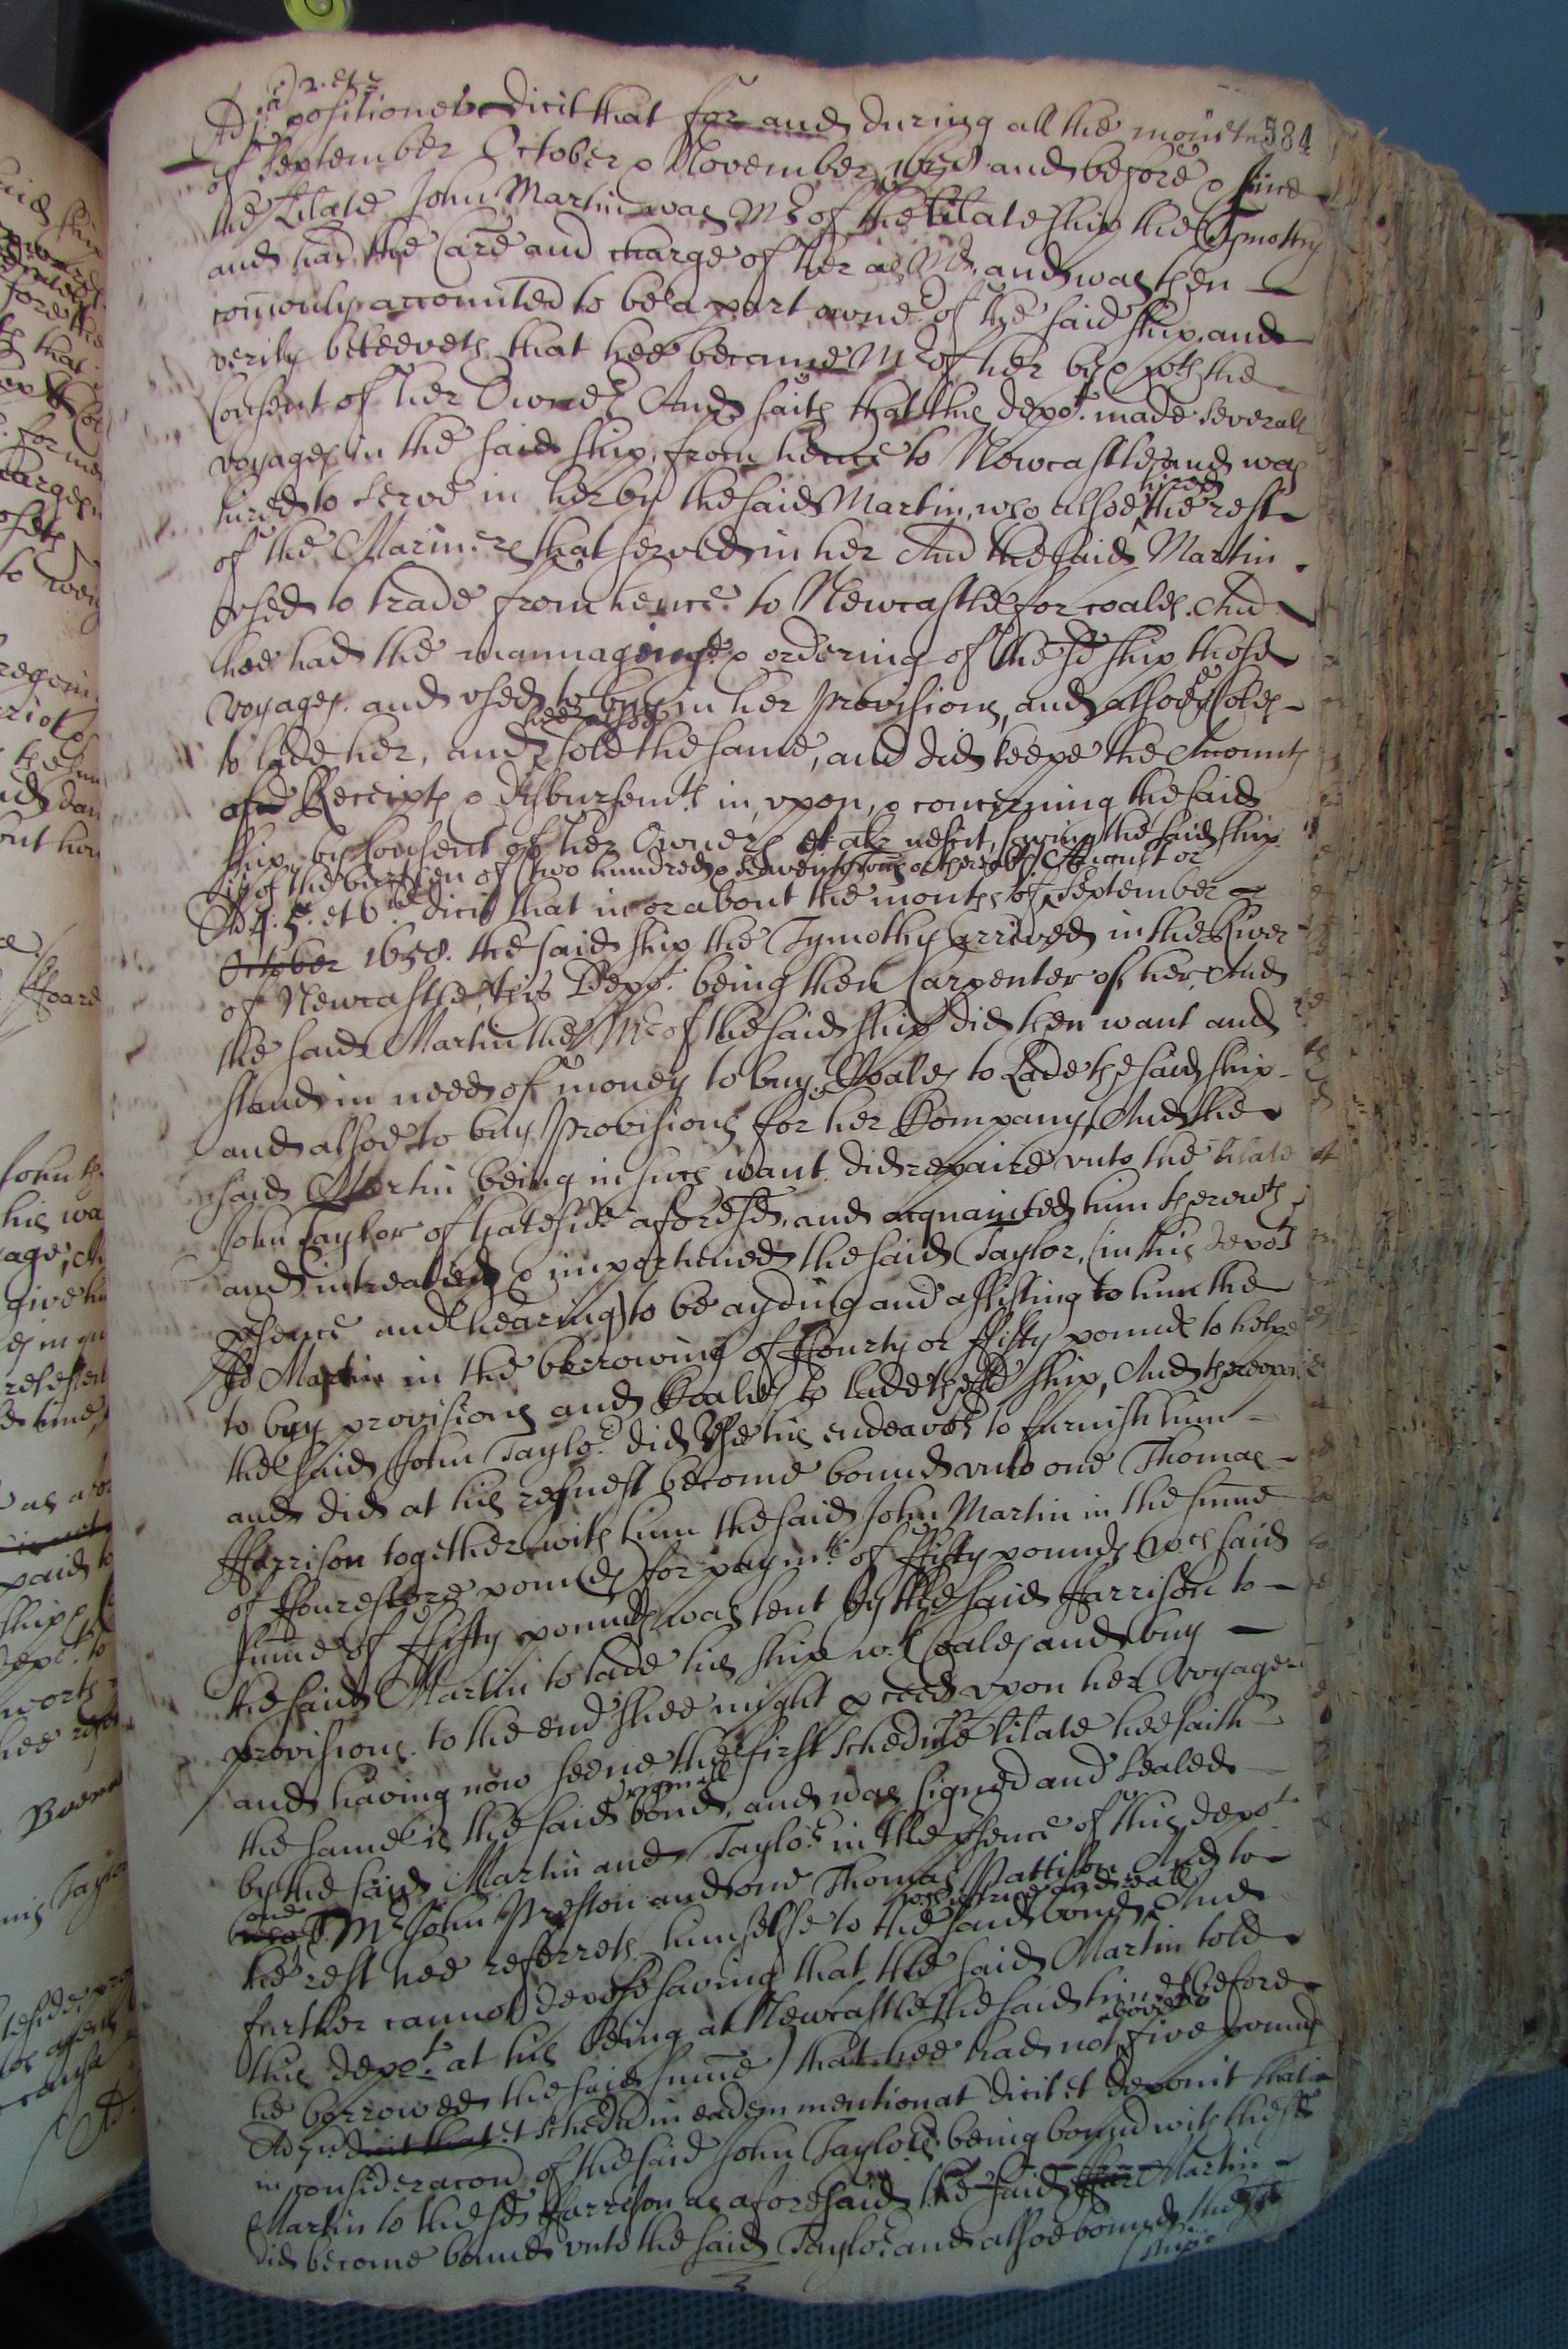 584
Ad j. 2. et 3 positiones dicit that for and during all the moneths
of September October & November 1658 and before & since
the Titlate John Martin was Mr of the titlate ship the Tymothy
and had the Care and charge of her as Mr, and was then
comonly accounted to bee a part owner of the said ship, and
verily beleeveth that hee became Mr of her by & with the
Consent of her Owners And saith that this depot. made severall
voyages in the said ship, from hence to Newcastle, and was
hired to serve in her by the said Martin, who alsoe hired the rest
of the Mariners that served in her And the said Martin
vsed to trade from hence to Newcastle for coales. And
hee had the mannageing & ordering of the sd ship those
voyages, and vsed to buy in her Provisions, and alsoe Coles
to lade her, and hee alsoe sold the same, and did keepe the Accounts
of Receipts & disbursemts in, vpon, & concerning the said
ship, by Consent of her Owners et alr nescit, saving the said ship
is of the burthen of two hundred & twenty Tonns or thereabts
Ad 4. 5. et 6. dicit that in or about the moneths of August or September
October 1658. the said ship the Tymothy arrived in the River
of Newcastle, this Depot. being then Carpenter of her, And
the said Martin the Mr of the said ship did then want and
stand in need of money to buy Coales to Lade the said ship
and alsoe to buy Provisions for her Company, And the
said Martin being in such want did repaire vnto the titlate
John Taylor of Gateside aforesd, and acquainted him therewth
and intreated & importuned the said Taylor, (in this depots
psence and hearing) to be ayding and assisting to him the
sd Martin in the borrowing of Fourty or Fifty pounds to helpe
to buy provisions and Coales to lade the sd ship, And therevpon
the said John Taylor did vse his endeavor to furnish him
and did at his request become bound vnto one Thomas
Harrison together with him the said John Martin in the sume
of Fourescore pounds for paymt of Fifty pounds wch said
sume of Fifty pounds was lent by the said Harrison to
the said Martin to lade his ship wth Coales and buy
provisions to the end shee might pceed vpon her Voyage
and having now seene the first schedule titlate hee saith
the same is the said originall bond, and was signed and sealed
by the said Martin and Taylor in the psence of this depot.
one Mr John Preston and one Thomas Pattison And to
the rest hee referreth himselfe to the said bond wch is true and reall And
further cannot depose saving that the said Martin told
this depot. at his being at Newcastle the said time (before
he borrowed the said sume) that hee had not above five pounds
Ad 7. dicit that et sched in eadem mentionat dicit et deponit that
in consideracon of the said John Taylors being bound with the sd
Martin to the sd Harrison as aforesaid the said Martin
did become bound vnto the said Taylor and alsoe bound the sd
ship